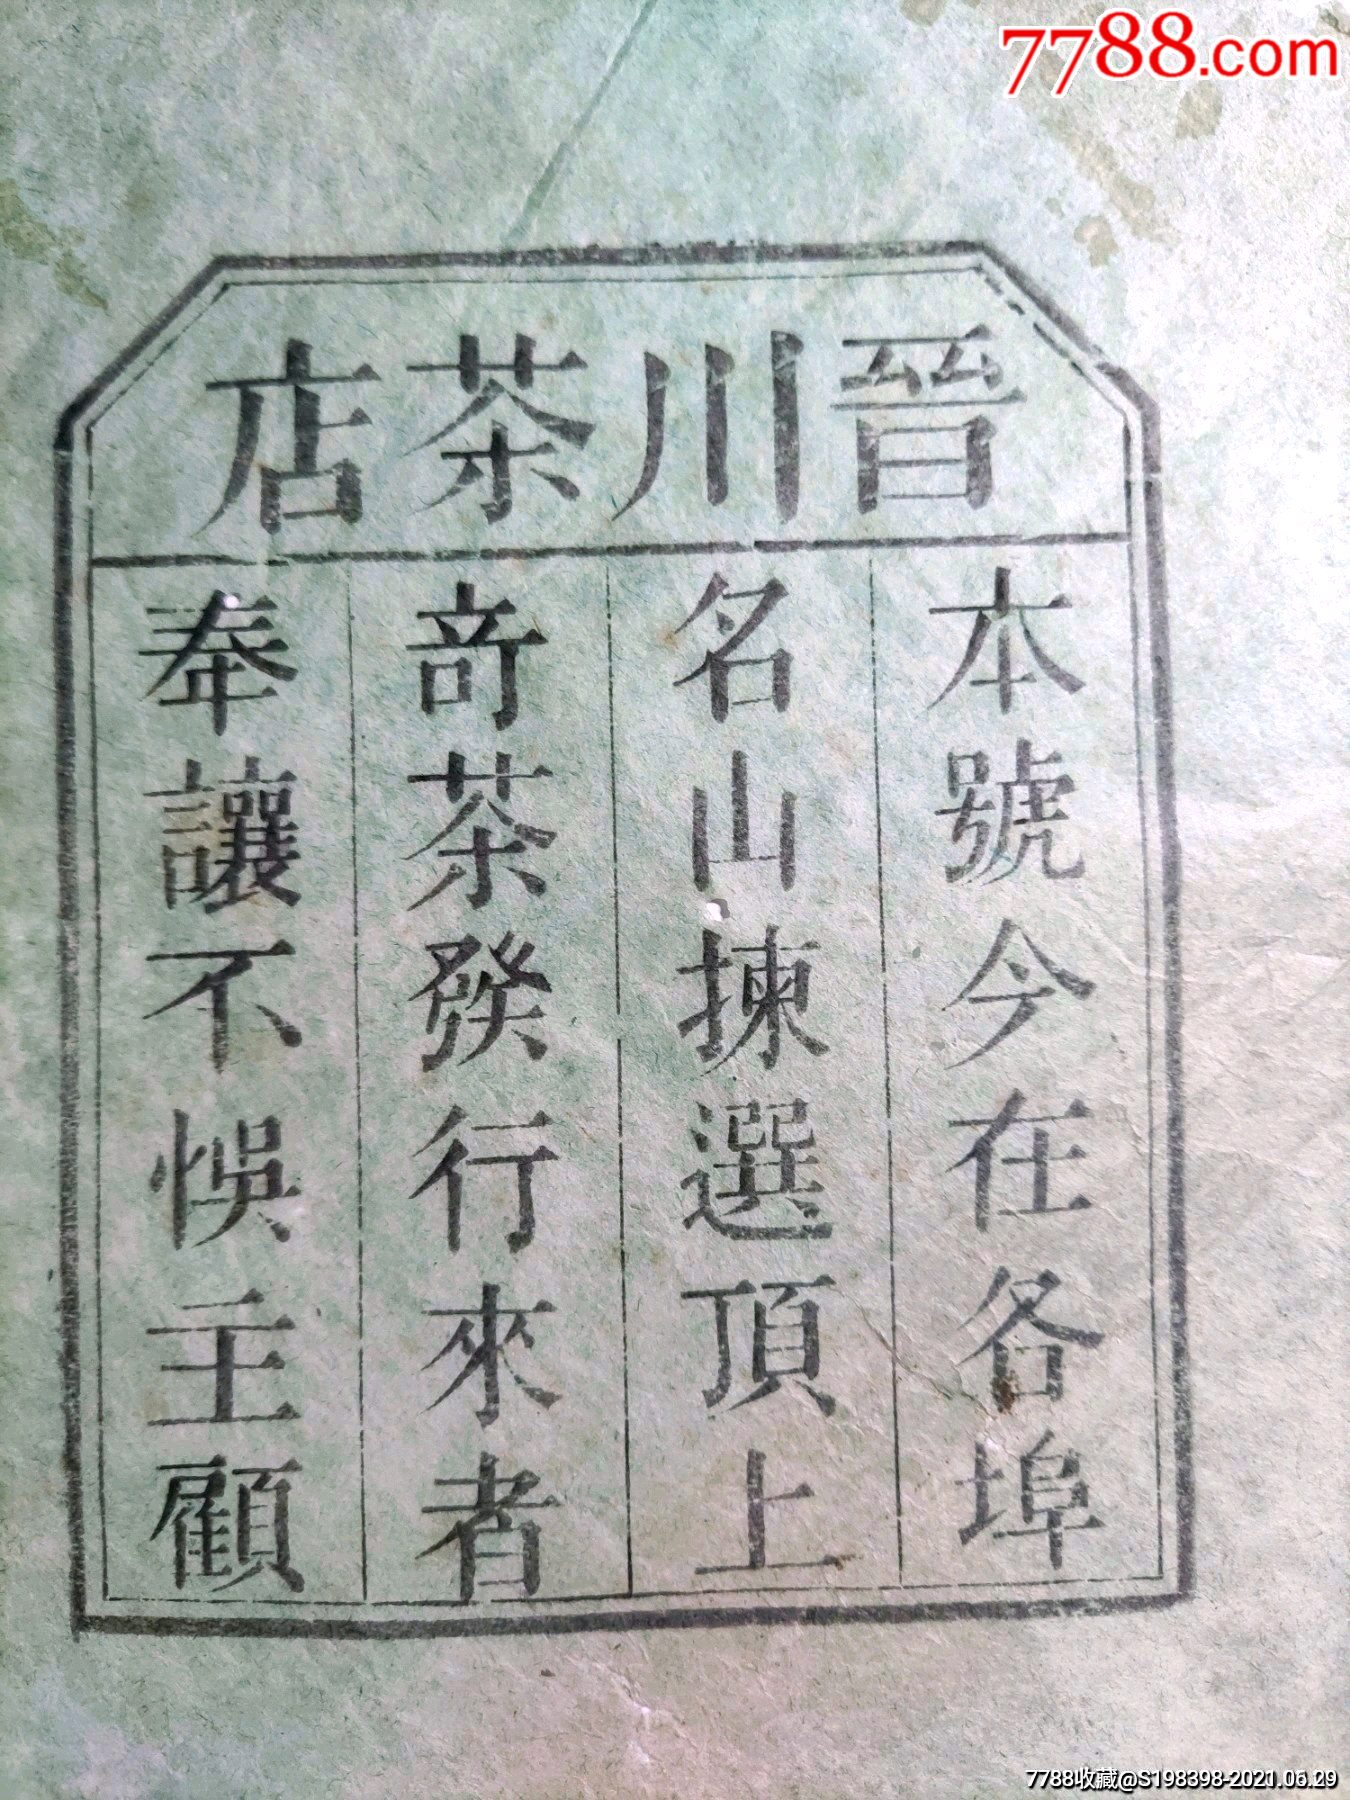 7788.com
晉川茶店
本號今在各埠
名山揀選頂上
奇茶發行來者
奉讓不悞主顧
7788收藏@S198398-2021.06.29